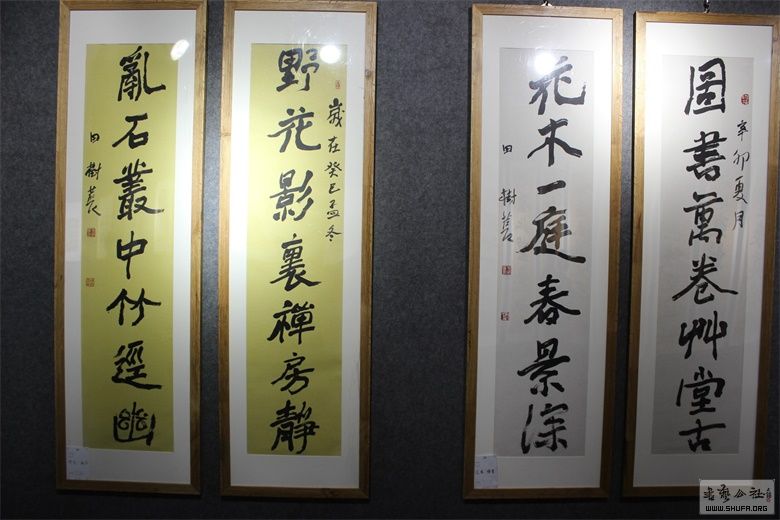 圖書萬卷艸堂古
辛卯夏月
花木一庭春景深
田樹萇
野花影裏禪房靜
歲在癸巳孟冬
亂石叢中竹徑幽
田樹萇
書藝公社
WWW.SHUFA.ORG